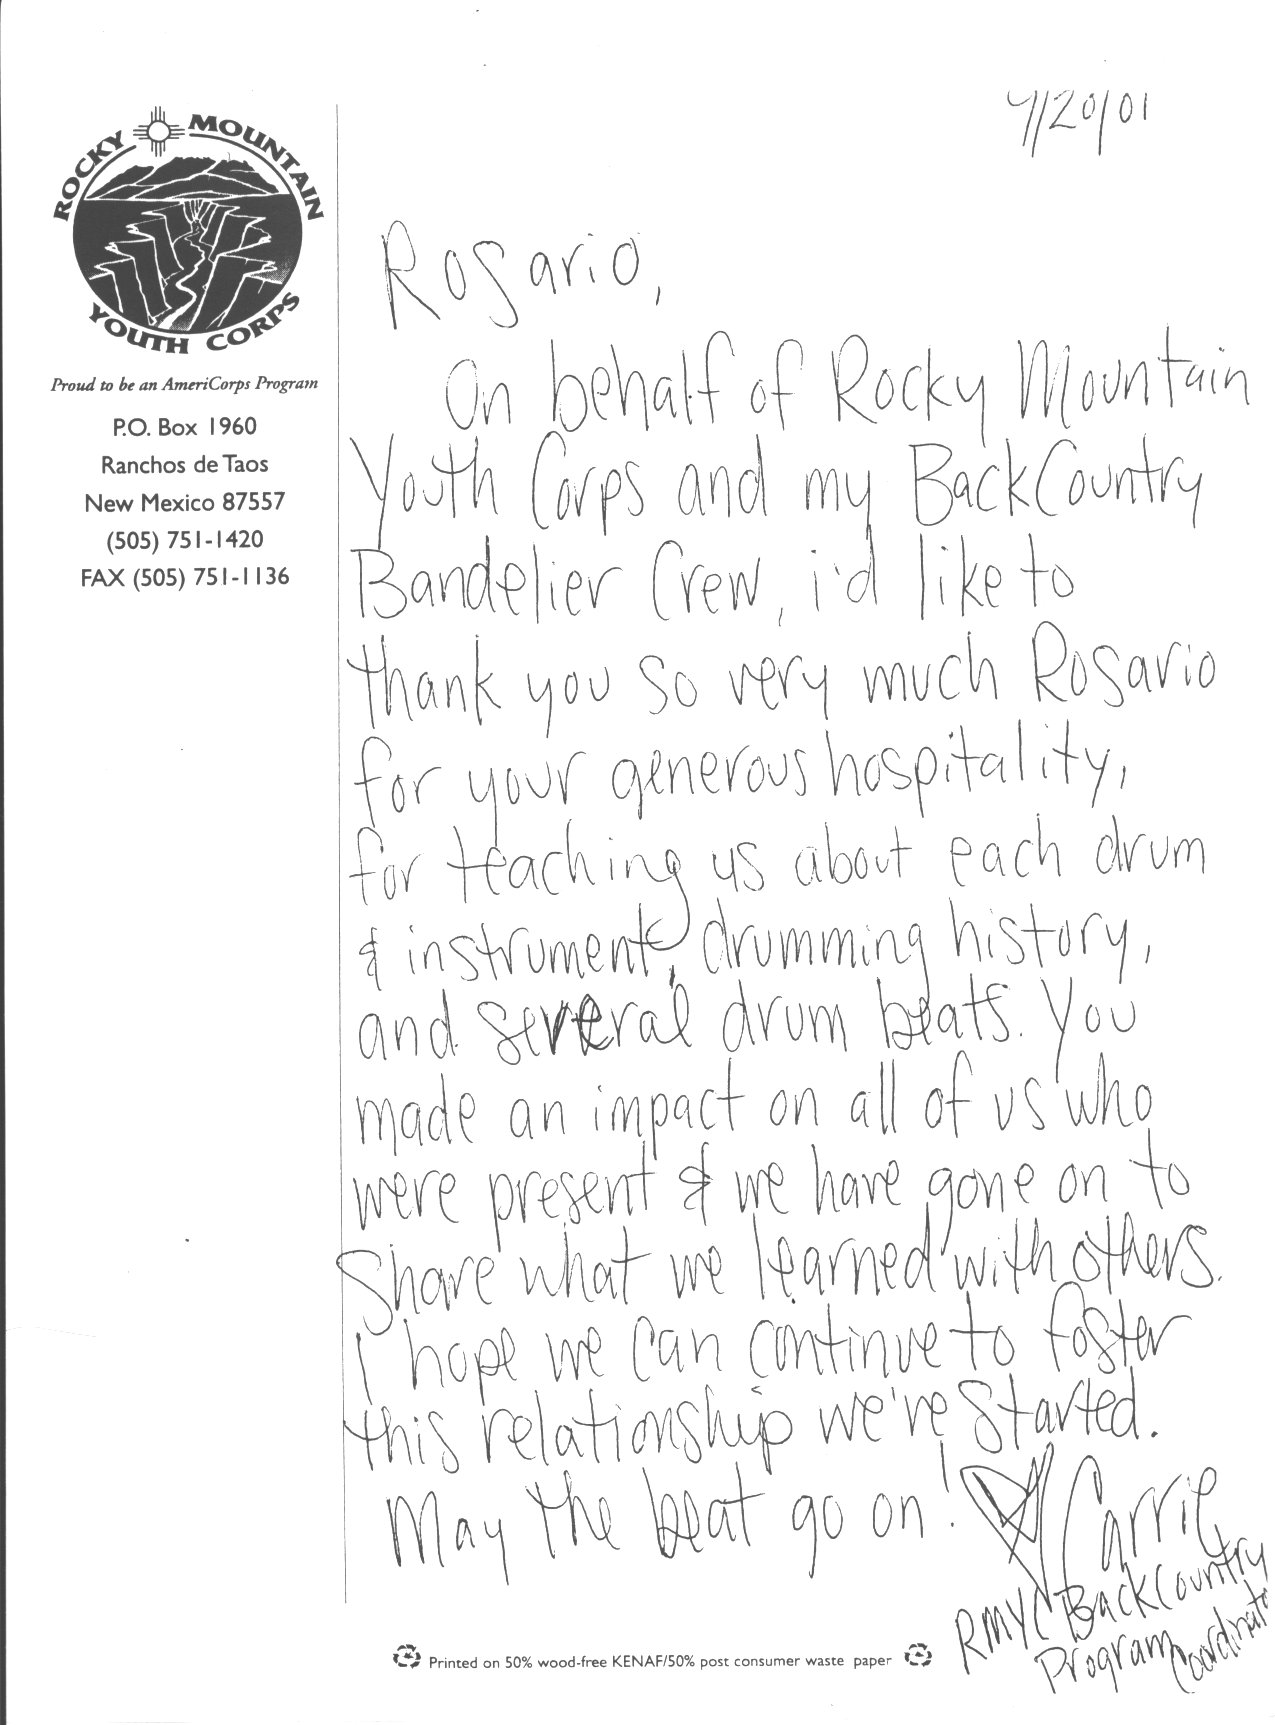 ROCKY MOUNTAIN
YOUTH CORPS
Proud to be an AmeriCorps Program
P.O. Box 1960
Ranchos de Taos
New Mexico 87557
(505) 751-1420
FAX (505) 751-1136
4/20/01
Rosario,
On behalf of Rocky Mountain
Youth Corps and my BackCountry
Bandelier Crew, i'd like to
thank you so very much Rosario
for your generous hospitality,
for teaching us about each drum
& instrument, drumming history,
and several drum beats. You
made an impact on all of us who
were present & we have gone on to
Share what we learned with others.
I hope we can continue to foster
this relationship we've started.
May the beat go on! Carrie
RMYC BackCountry
Program Coordinator
Printed on 50% wood-free KENAF/50% post consumer waste paper